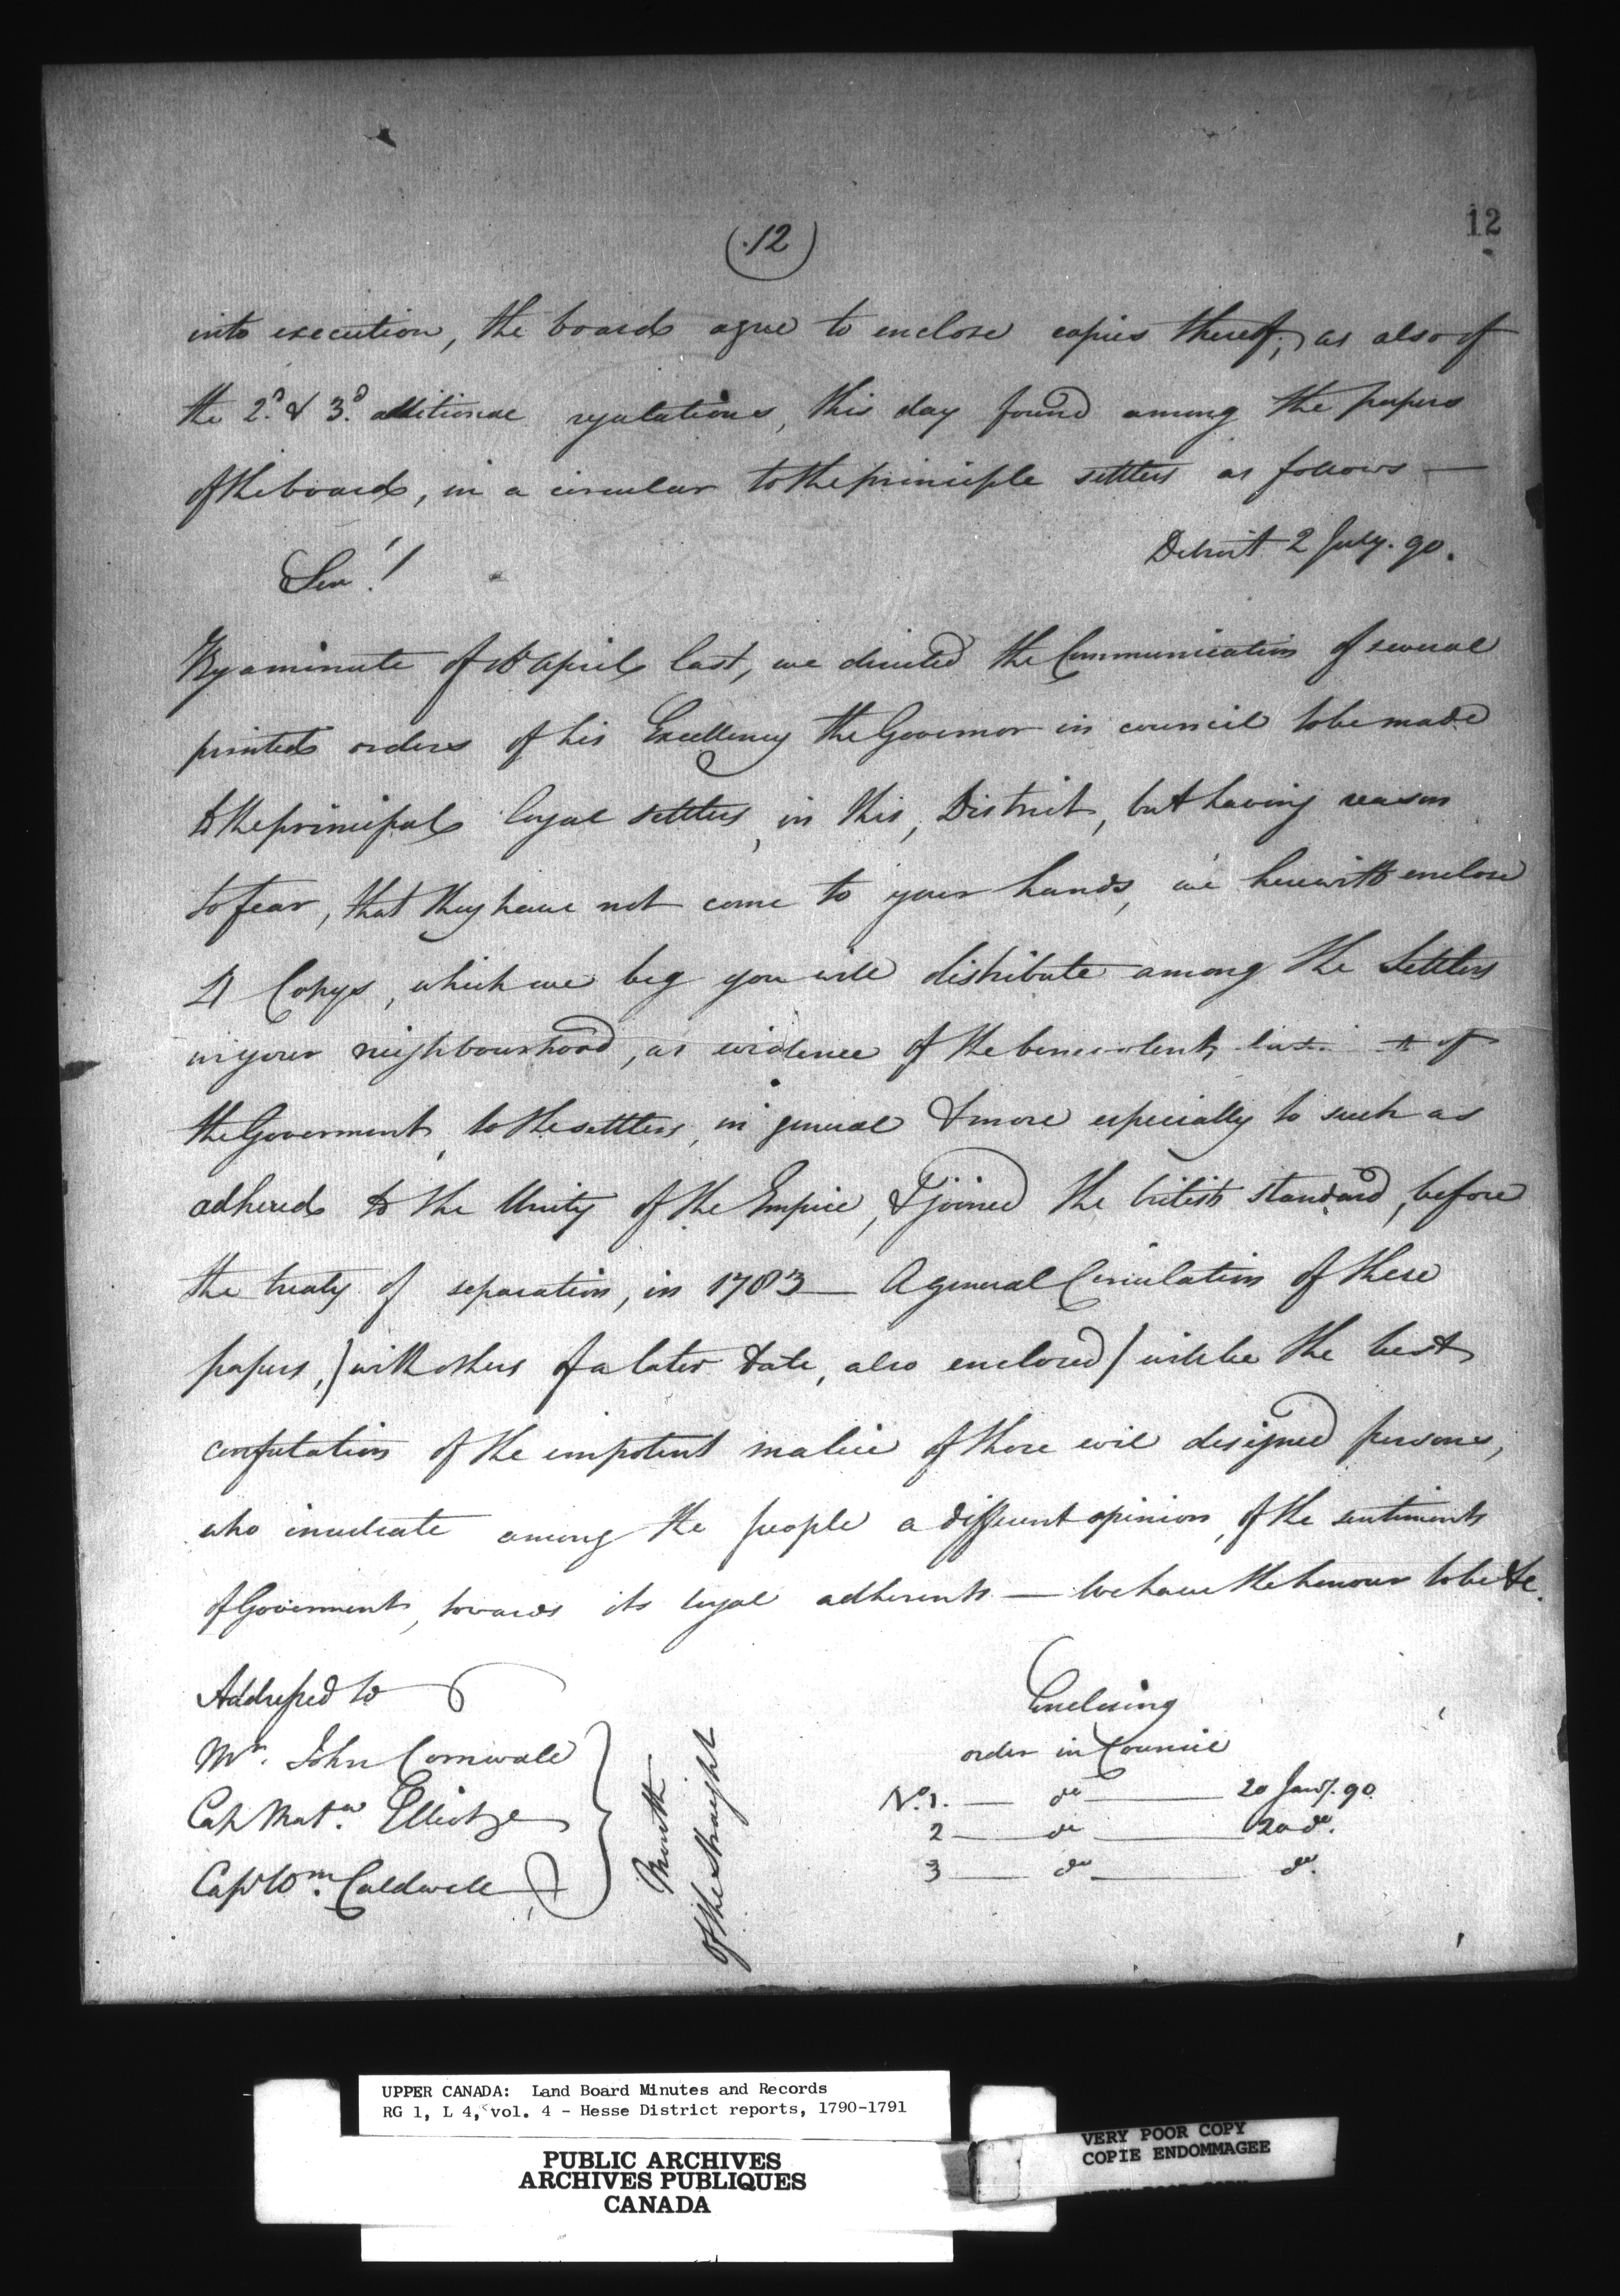 12
(12)
into execution, the board agree to enclose copies thereof, as also of
the 2d. & 3d. additional regulations, this day found among the papers
of the board, in a circular to the principle settlers as follows —
Detroit 2 July. 90.
Sir!
By a minute of April last, we directed the Communication of several
printed orders of his Excellency the Governor in council to be made
to the principal loyal settlers, in this, District, but having reason
to fear, that they have not come to your hands, we herewith enclose
Copys, which we beg you will distribute among the Settlers
in your neighbourhood, as evidence of the benevolent of
the Goverment, to the settlers, in general & more especially to such as
adhered to the Unity of the Empire, & joined the british standard, before
the treaty of separation, in 1783 — A general Circulation of these
papers, ) with others of a later date, also enclosed / will be the best
confutation of the impotent malice of those evil designed persons,
who inculcate among the people a different opinion, of the sentiments
of Goverment, towards its loyal adherents — We have the honour to be &c.
Addressed to
Mr. John Cornwall
Cap Matw. Elliot
Capt Wm. Caldwell
Mouth
of the straight
Enclosing
order in Council
No. 1. — do — 20 Jany. 90
2 — do — 20 do.
3 — do — do.
UPPER CANADA: Land Board Minutes and Records
RG 1, L 4, vol. 4 - Hesse District reports, 1790-1791
PUBLIC ARCHIVES
ARCHIVES PUBLIQUES
CANADA
VERY POOR COPY
COPIE ENDOMMAGEE